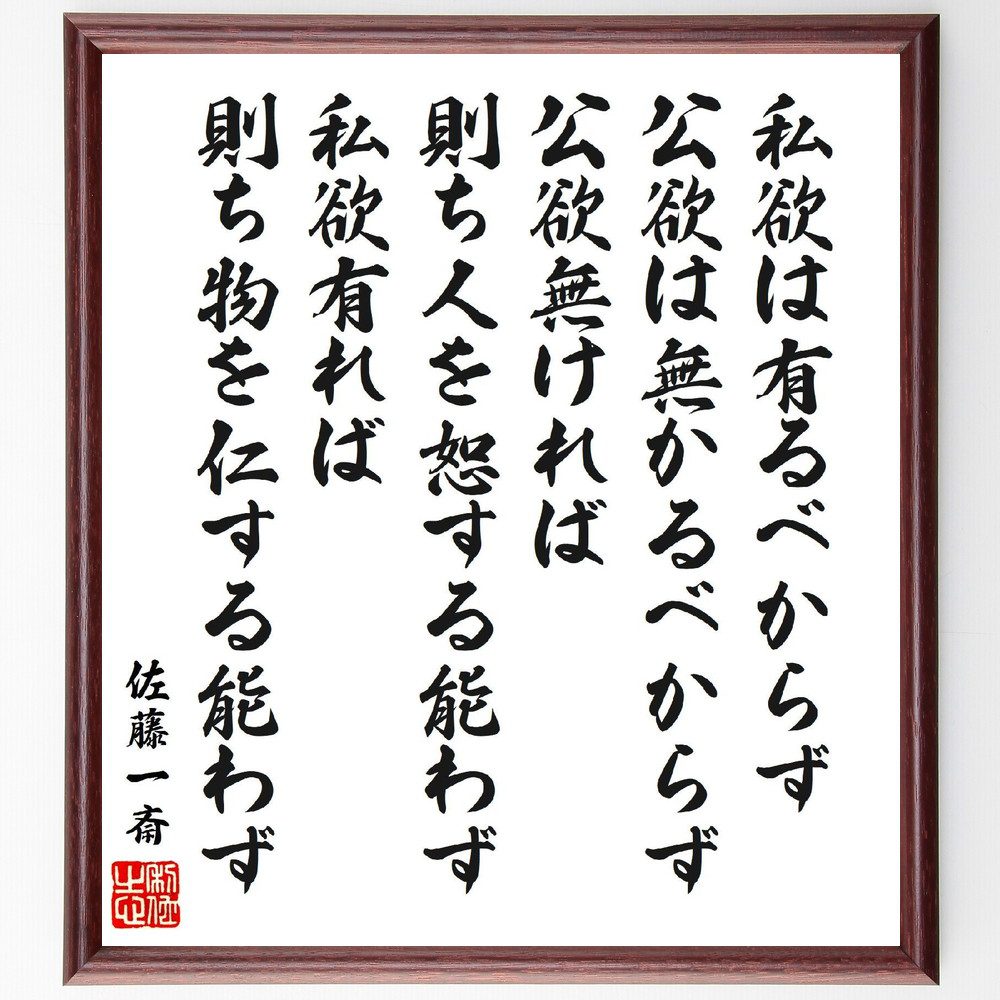 私欲は有るべからず
公欲は無かるべからず
公欲無ければ
則ち人を恕する能わず
私欲有れば
則ち物を仁する能わず
佐藤一斎